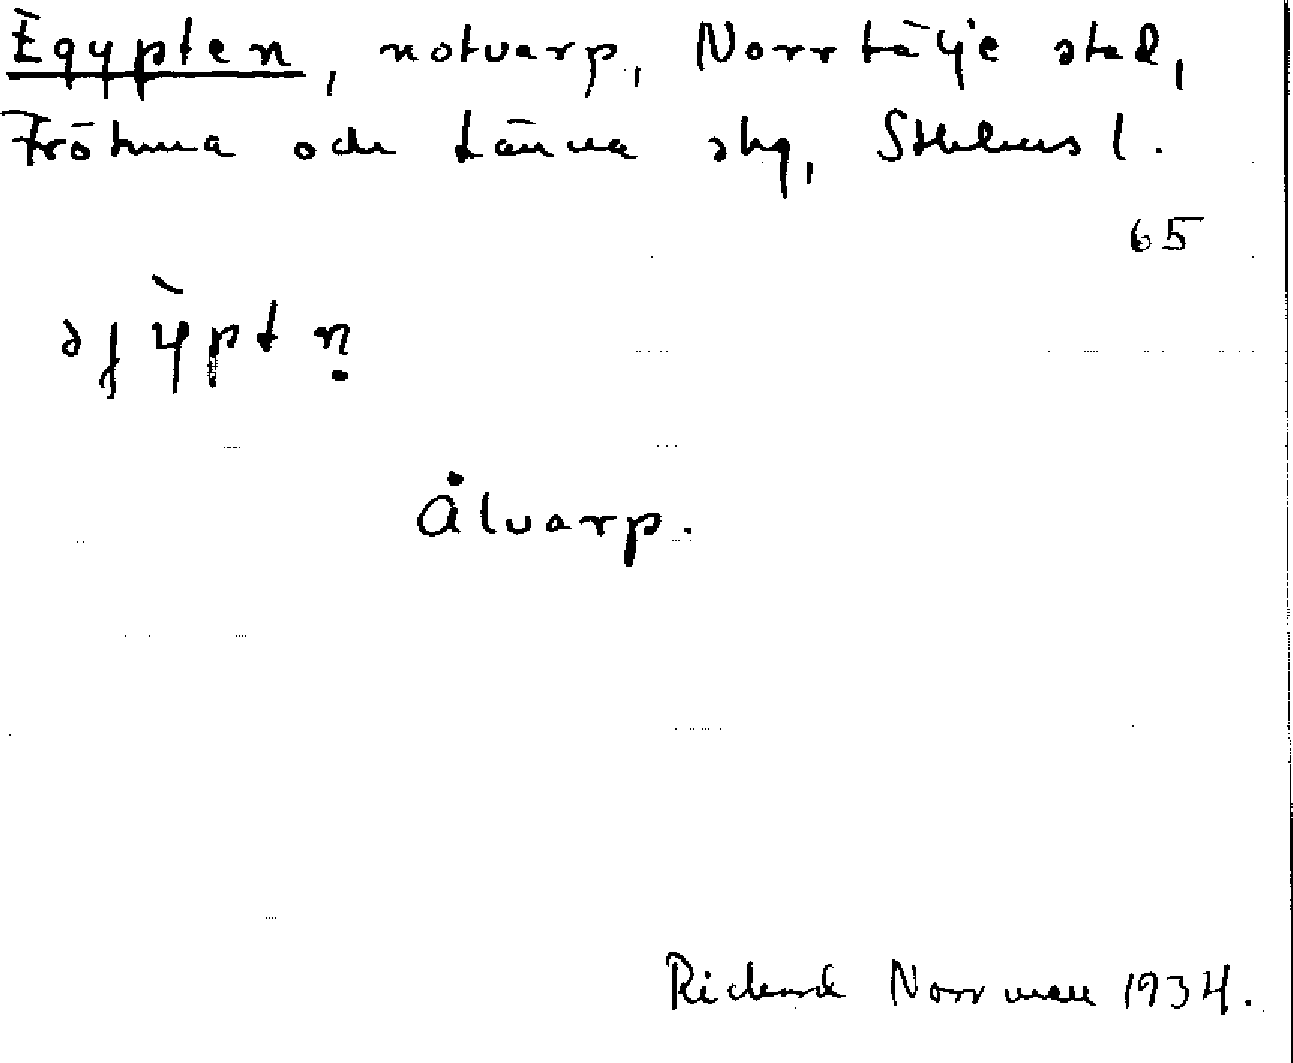 Egypten, notvarp, Norrtälje stad,
Frötuna och Länna skg, Sthlms l.
65
Ålvarp.
Richard Norrman 1934.